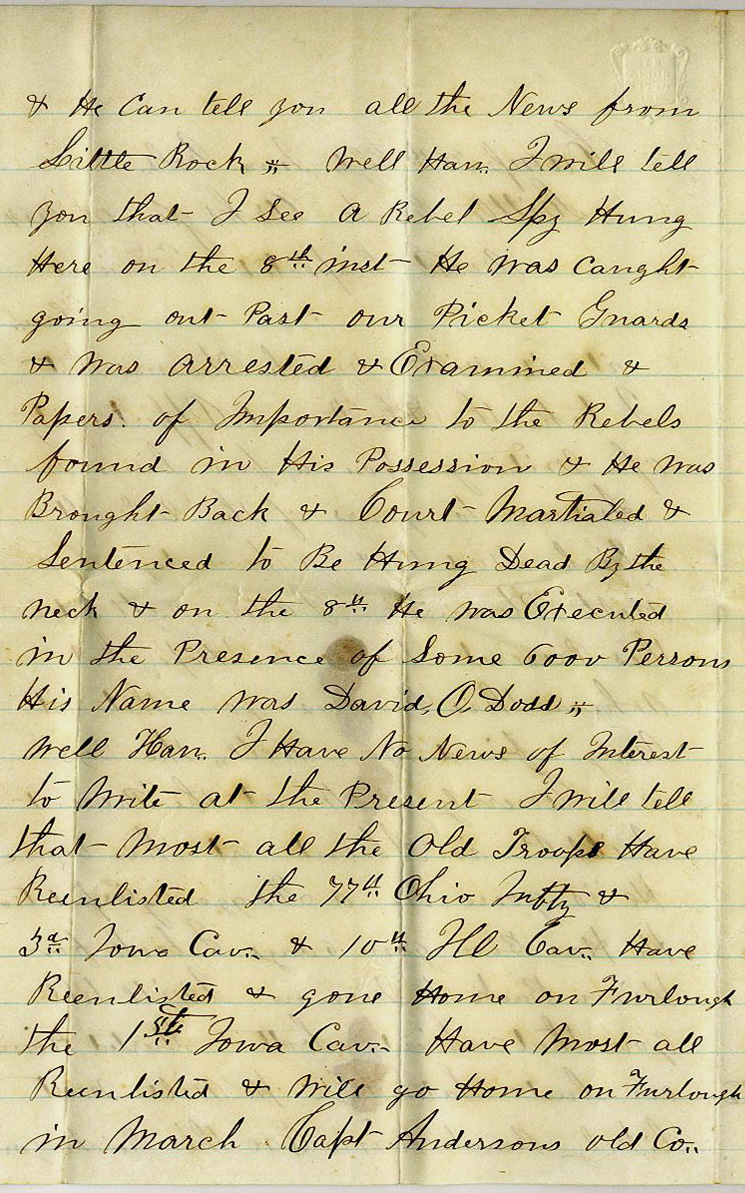 & He Can tell you all the News from
Little Rock „ Well Han. I will tell
you that I See A Rebel Spy Hung
Here on the 8th inst He was caught
going out Past our Picket Guards
& was Arrested & Examined &
Papers. of Importance to the Rebels
found in His Possession & He was
Brought Back & Court Martialed &
Sentenced to Be Hung Dead By the
neck & on the 8th He was Executed
in the Presence of Some 6000 Persons
His Name was David, O, Dodd „
Well Han. I Have No News of Interest
to Write at the Present I will tell
that most all the Old Troops Have
Reenlisted the 77th Ohio Infty &
3d Iowa Cav. & 10th Ill Cav. Have
Reenlisted & gone Home on Furlough
the 1st Iowa Cav. Have Most all
Reenlisted & Will go Home on Furlough
in March Capt Andersons old Co..